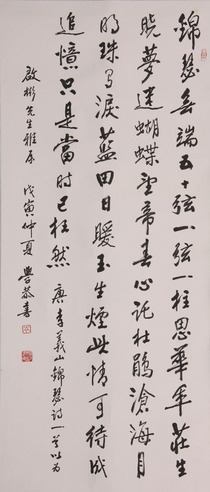 錦瑟無端五十弦一弦一柱思華年莊生
曉夢迷蝴蝶望帝春心託杜鵑滄海月
明珠有淚藍田日暖玉生煙此情可待成
追憶只是當時已枉然 唐李義山錦瑟詩一首以為
啟彬先生雅屬 戊寅仲夏